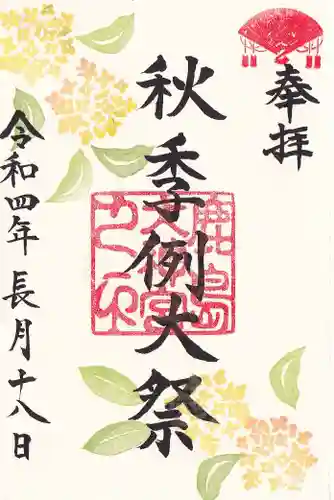 奉拝
秋季例大祭
令和四年長月十八日